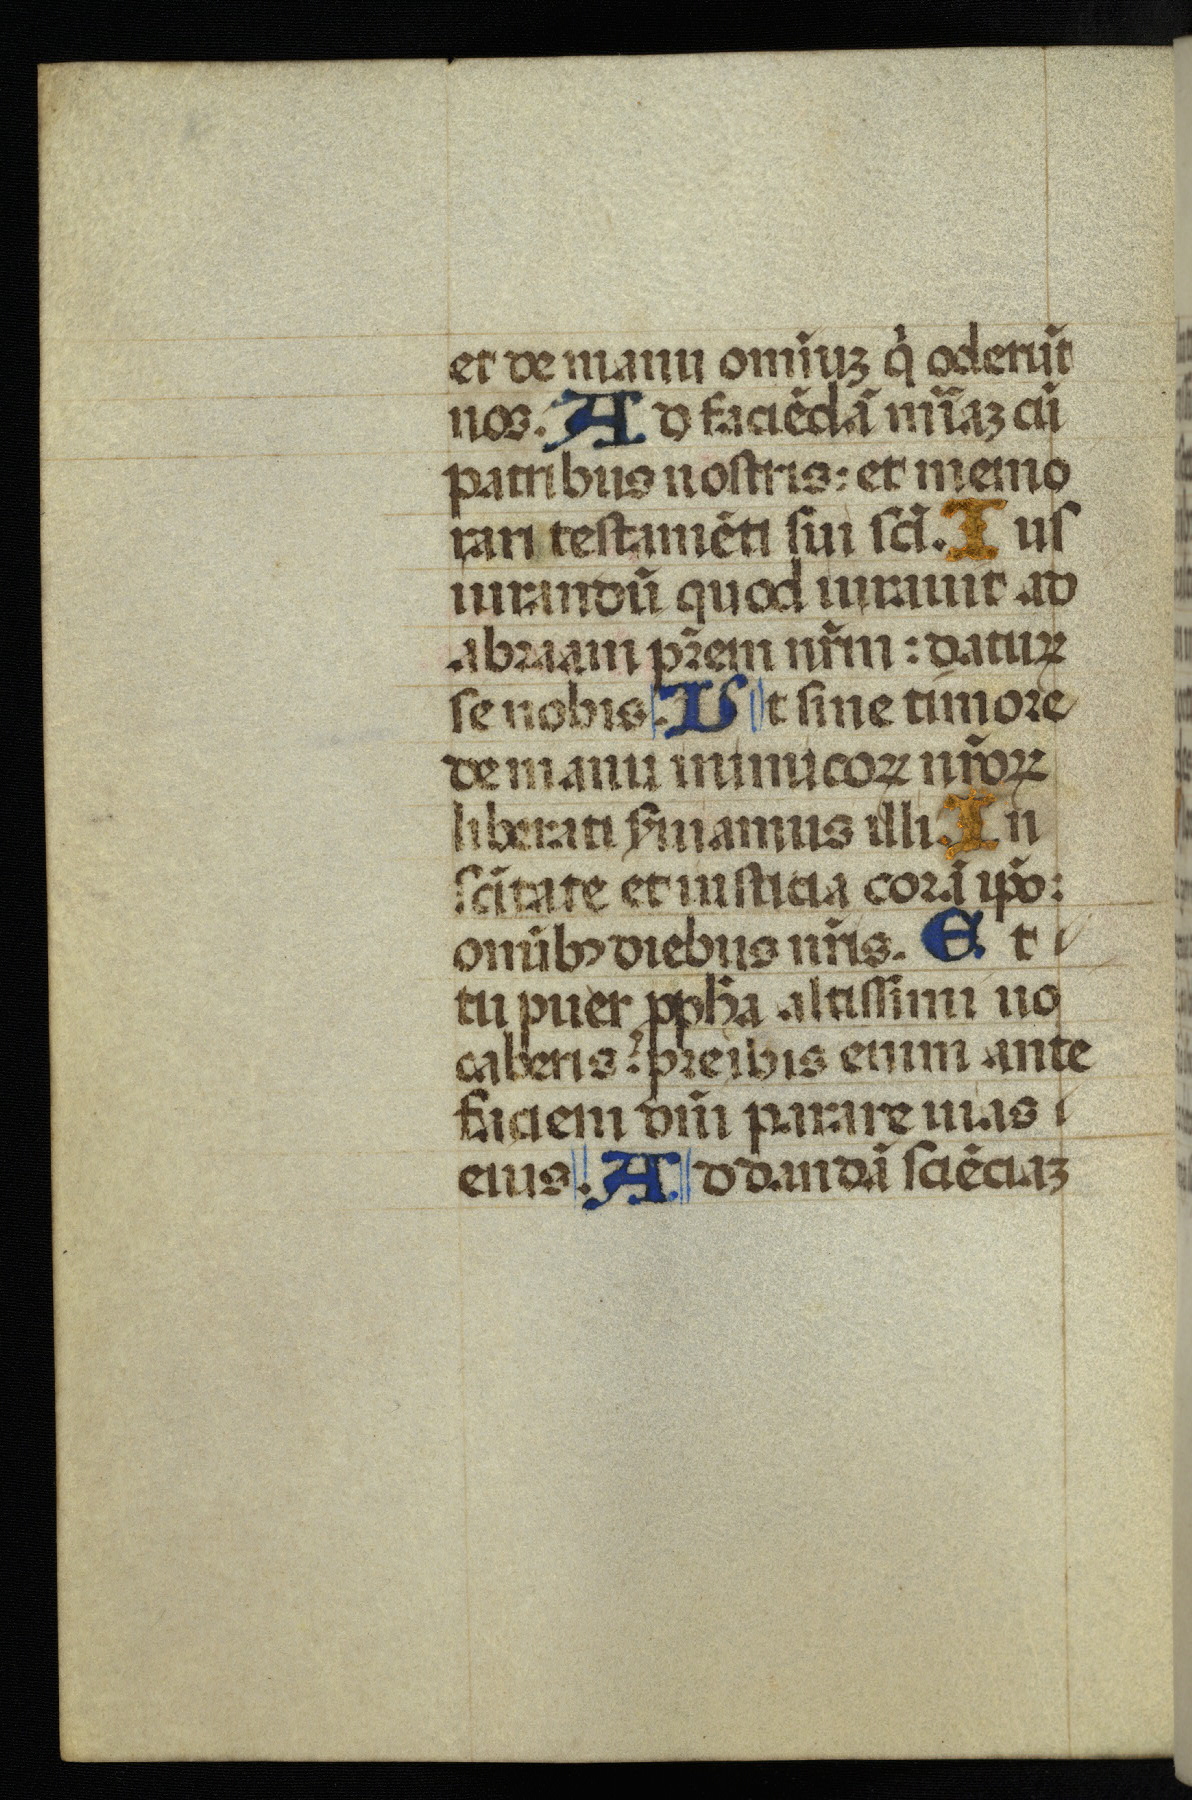 et de manu omīuʒ q̇ oderūt
nos. Ad faciēdā mīaʒ cū
patribus nostris: et memo
rari testamēti sui scī. Ius
iurandū quod iurauit ad
abraam pr̄em nrm̄: daturꝝ
se nobis. Ut sine timore
de manu inimicoꝝ nr̄oꝝ
liberati ſ̄uiamus illi. In
scītate et iusticia corā ip̄o:
omībꝰ diebus nr̄is. Et
tu puer ꝓph̄a altissimi uo
caberis: preibis enim ante
faciem dn̄i parare uias
eius. Ad dandā sciēciaʒ